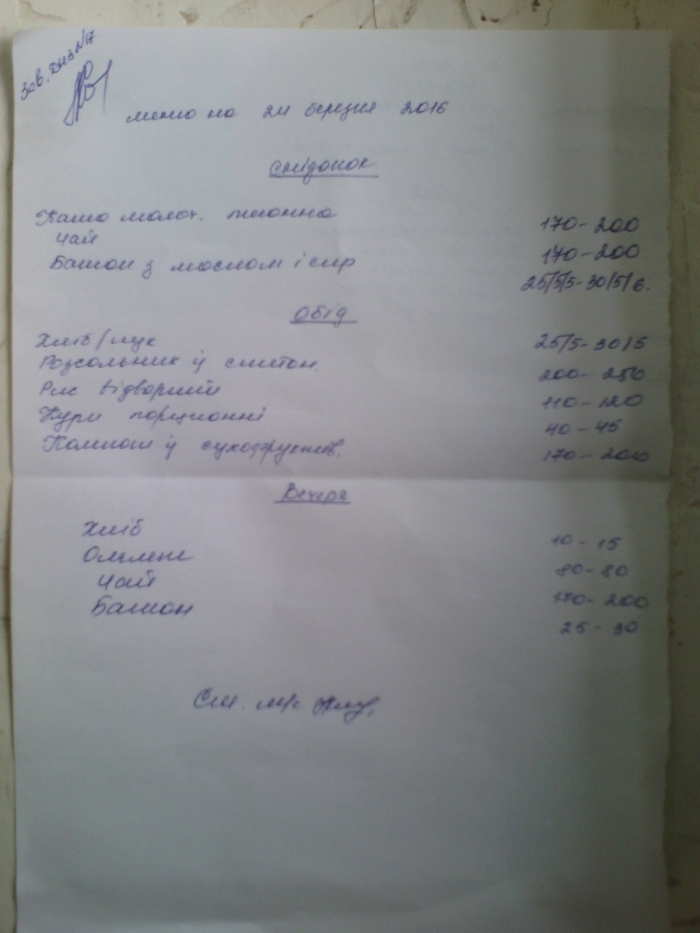 Зав. ДНЗ №17
меню на 24 березня 2016
Сніданок
Каша молоч. пшонна 170-200
Чай 170-200
Батон з маслом і сир 25/5/5-30/5/6.
Обід
Хліб/лук 25/5-30/5
Розсольник із сметан. 200-250
Рис відварний 110-120
Кури порционні 40-45
Компот із сухофруктів. 170-200
Вечеря
Хліб 10-15
Омлет 80-80
Чай 170-200
Батон 25-30
Ст. м/с